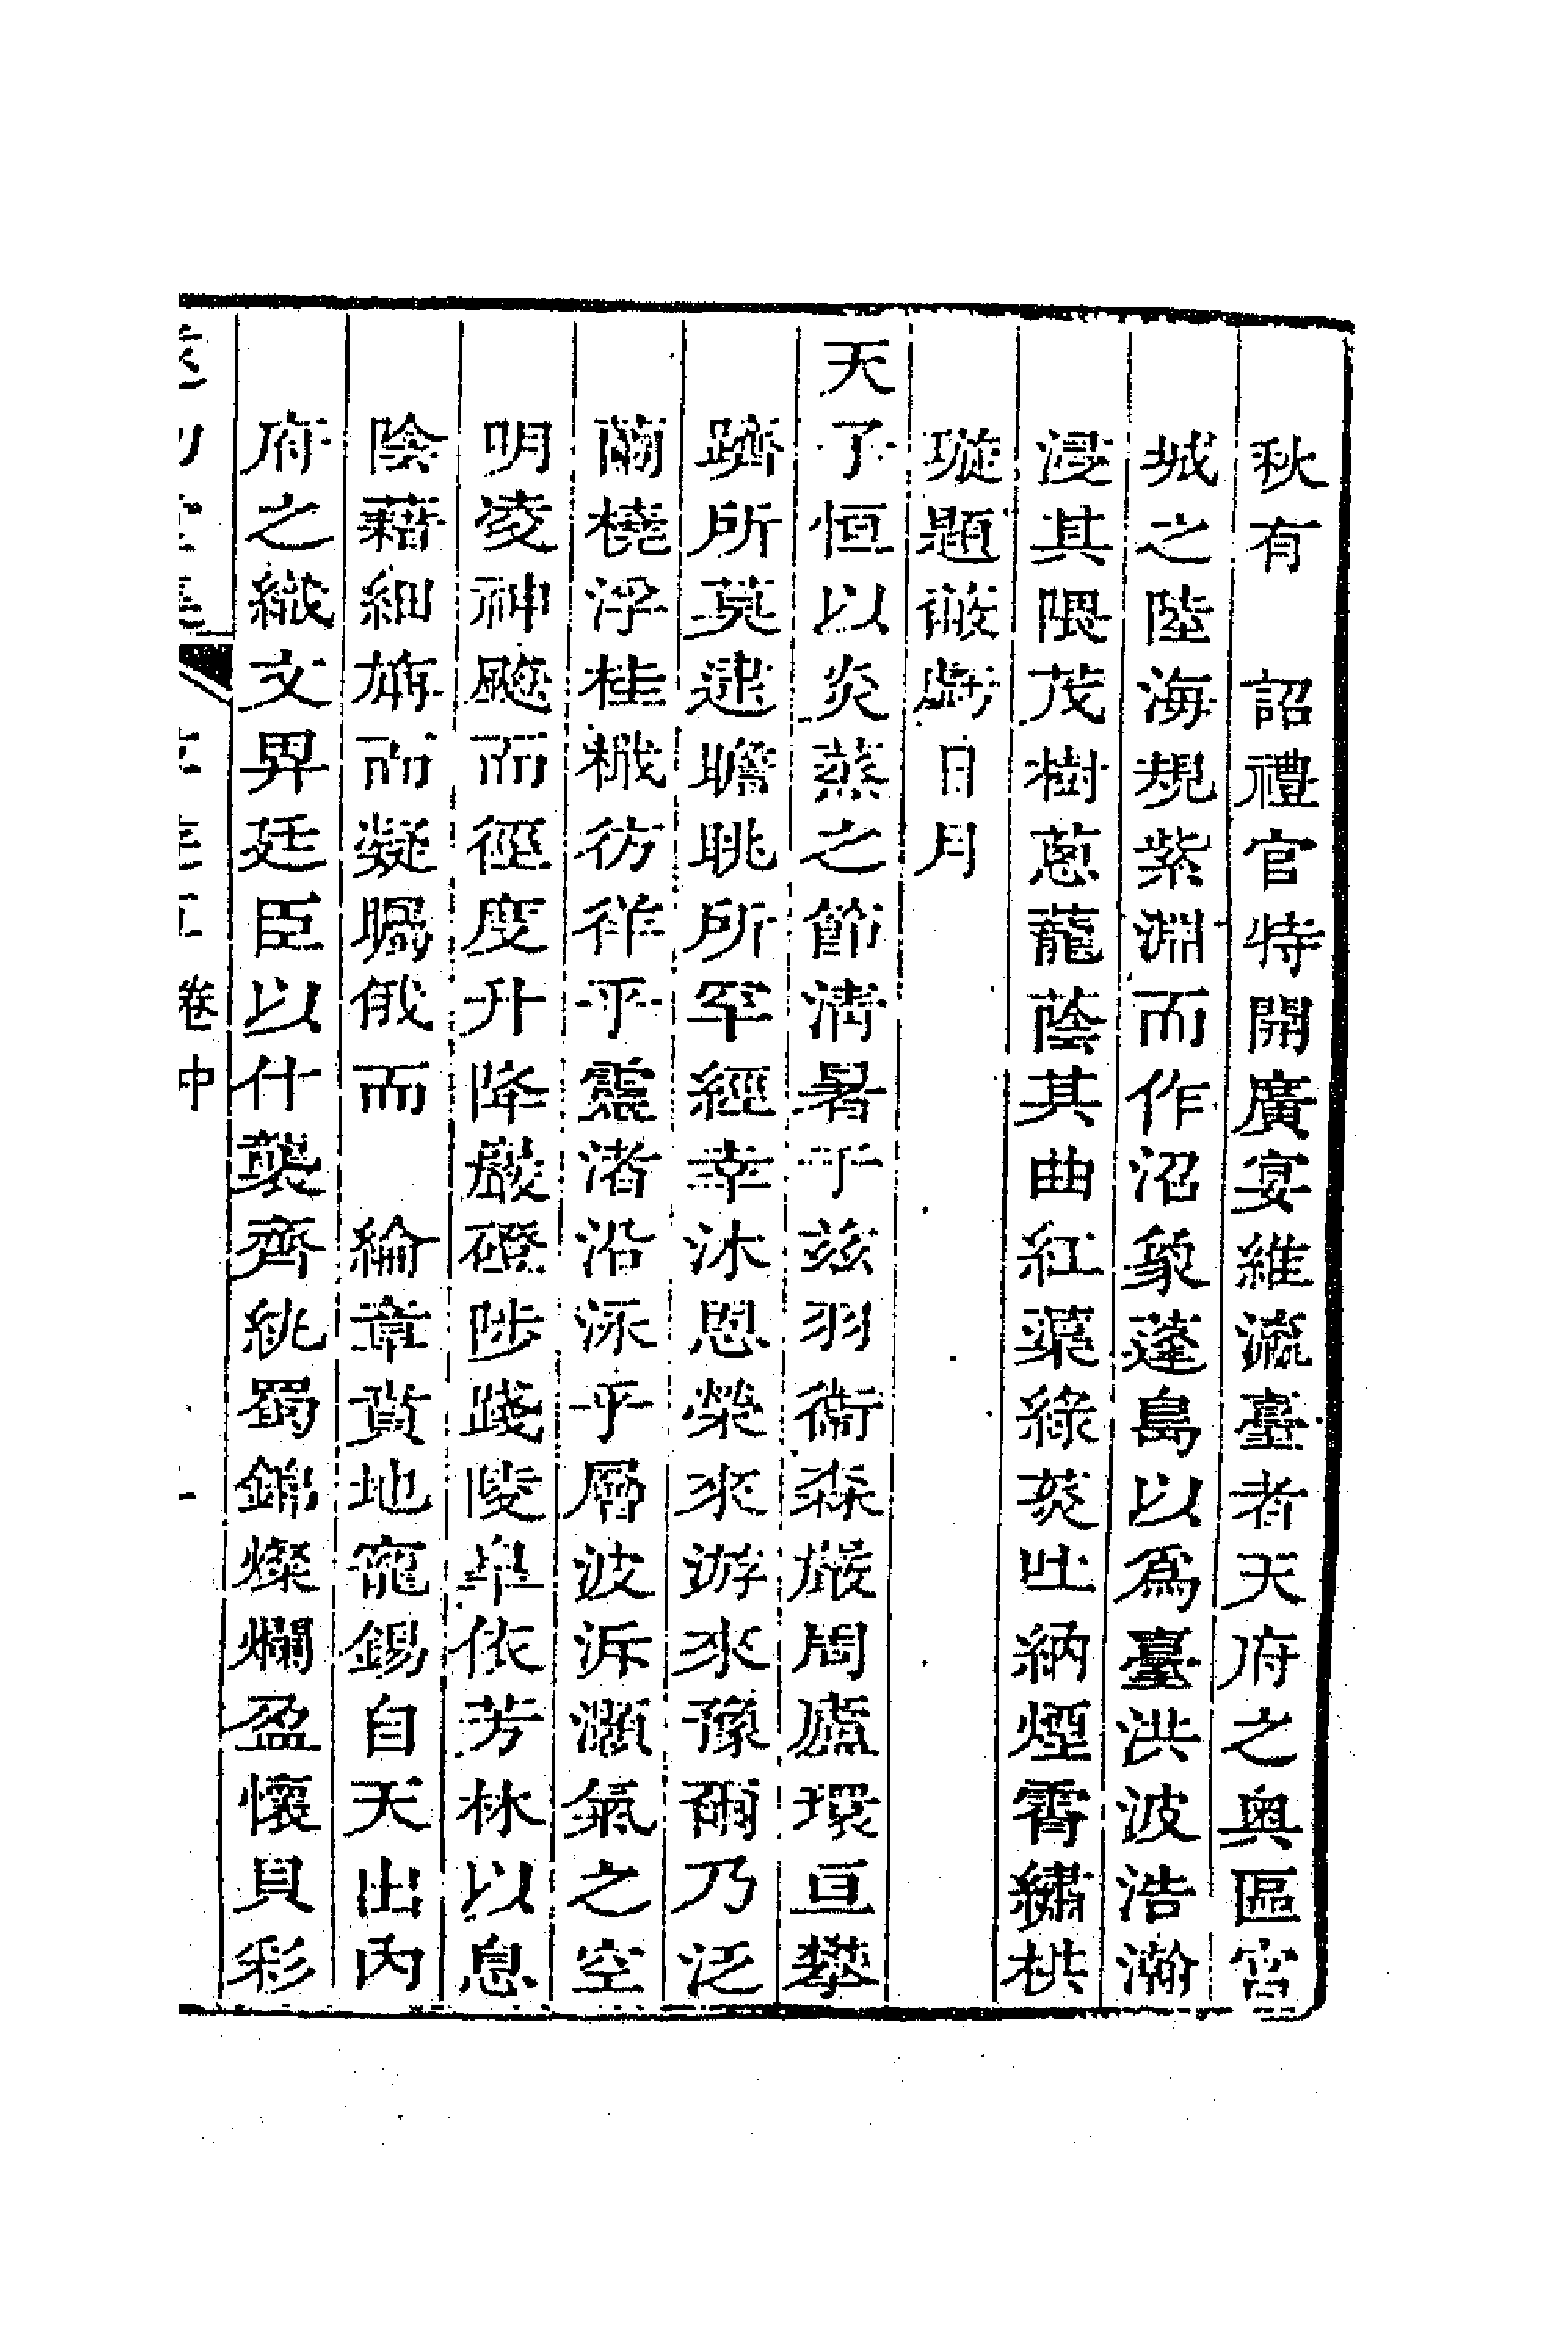 秋有　詔禮官特開廣宴維瀛臺者天府之奥區宮
城之陸海規紫淵而作沼象蓬島以爲臺洪波浩瀚
浸其隈茂樹蔥蘢蔭其曲紅蕖綠菼吐納煙霄繡栱
璇題蔽虧日月
天子恒以炎蒸之節淸暑于兹羽衞森嚴周廬環亘攀
躋所莫逮瞻眺所罕經幸沐恩榮來游來豫爾乃泛
蘭橈浮桂檝彷徉乎靈渚沿泳乎層波泝灝氣之空
明凌神飈而徑度升降巖磴陟踐陵皐依芳林以息
陰藉細旃而凝矚俄而　綸章賁地寵錫自天出內
府之織文畀廷臣以什襲齊紈蜀錦燦爛盈懷貝彩
卷中